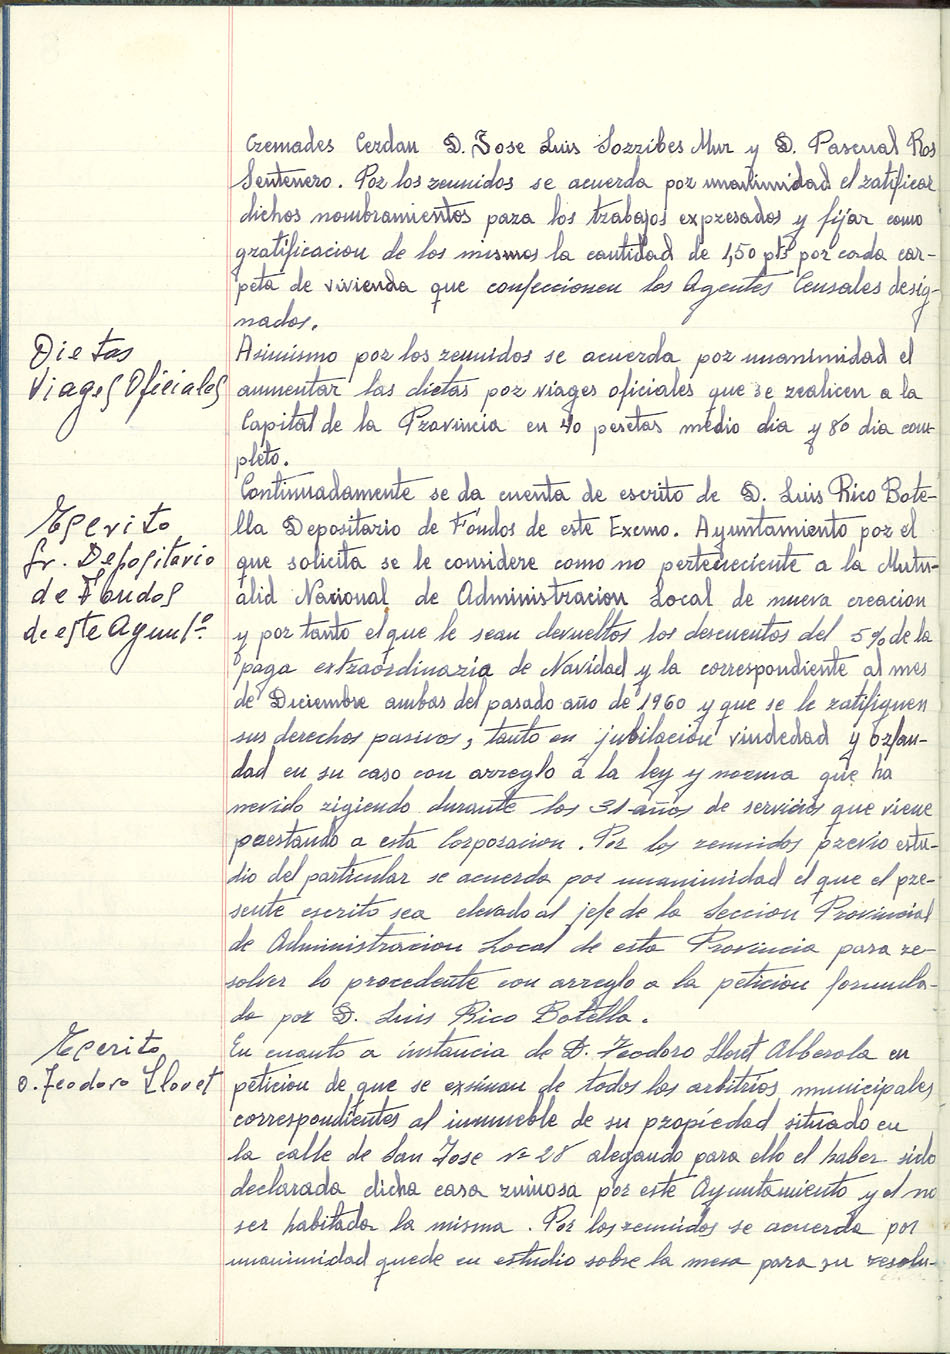 Cremades Cerdan D. Jose Luis Torribes Mur y D. Pascual Ros
Sentenero. Por los reunidos se acuerda por unanimidad el ratificar
dichos nombramientos para los trabajos expresados y fijar como
gratificacion de los mismos la cantidad de 1,50 pts por cada car-
peta de vivienda que confeccionen los Agentes Censales desig-
nados.
Dietas
Viages Oficiales
Asimismo por los reunidos se acuerda por unanimidad el
aumentar las dietas por viages oficiales que se realicen a la
Capital de la Provincia en 40 pesetas medio dia y 80 dia com-
pleto.
Escrito
Sr. Depositario
de Fondos
de este Ayuntº
Continuadamente se da cuenta de escrito de D. Luis Rico Bote-
lla Depositario de Fondos de este Excmo. Ayuntamiento por el
que solicita se le considere como no perteneciente a la Mutu-
alid Nacional de Administracion Local de nueva creacion
y por tanto el que le sean devueltos los descuentos del 5% de la
paga extraordinaria de Navidad y la correspondiente al mes
de Diciembre ambas del pasado año de 1960 y que se le ratifiquen
sus derechos pasivos, tanto en jubilacion viudedad y orfan-
dad en su caso con arreglo a la ley y norma que ha
nevido rigiendo durante los 31 años de servicios que viene
prestando a esta Corporacion. Por los reunidos previo estu-
dio del particular se acuerda por unanimidad el que el pre-
sente escrito sea elevado al jefe de la Seccion Provincial
de Administracion Local de esta Provincia para re-
solver lo procedente con arreglo a la peticion formula-
da por D. Luis Rico Botella.
Escrito
D. Teodoro Lloret
En cuanto a instancia de D. Teodoro Lloret Alberola en
peticion de que se exsiman de todos los arbitrios municipales
correspondientes al inmueble de su propiedad situado en
la calle de San Jose nº 28 alegando para ello el haber sido
declarada dicha casa ruinosa por este Ayuntamiento y el no
ser habitada la misma. Por los reunidos se acuerda por
unanimidad quede en estudio sobre la mesa para su resolu-